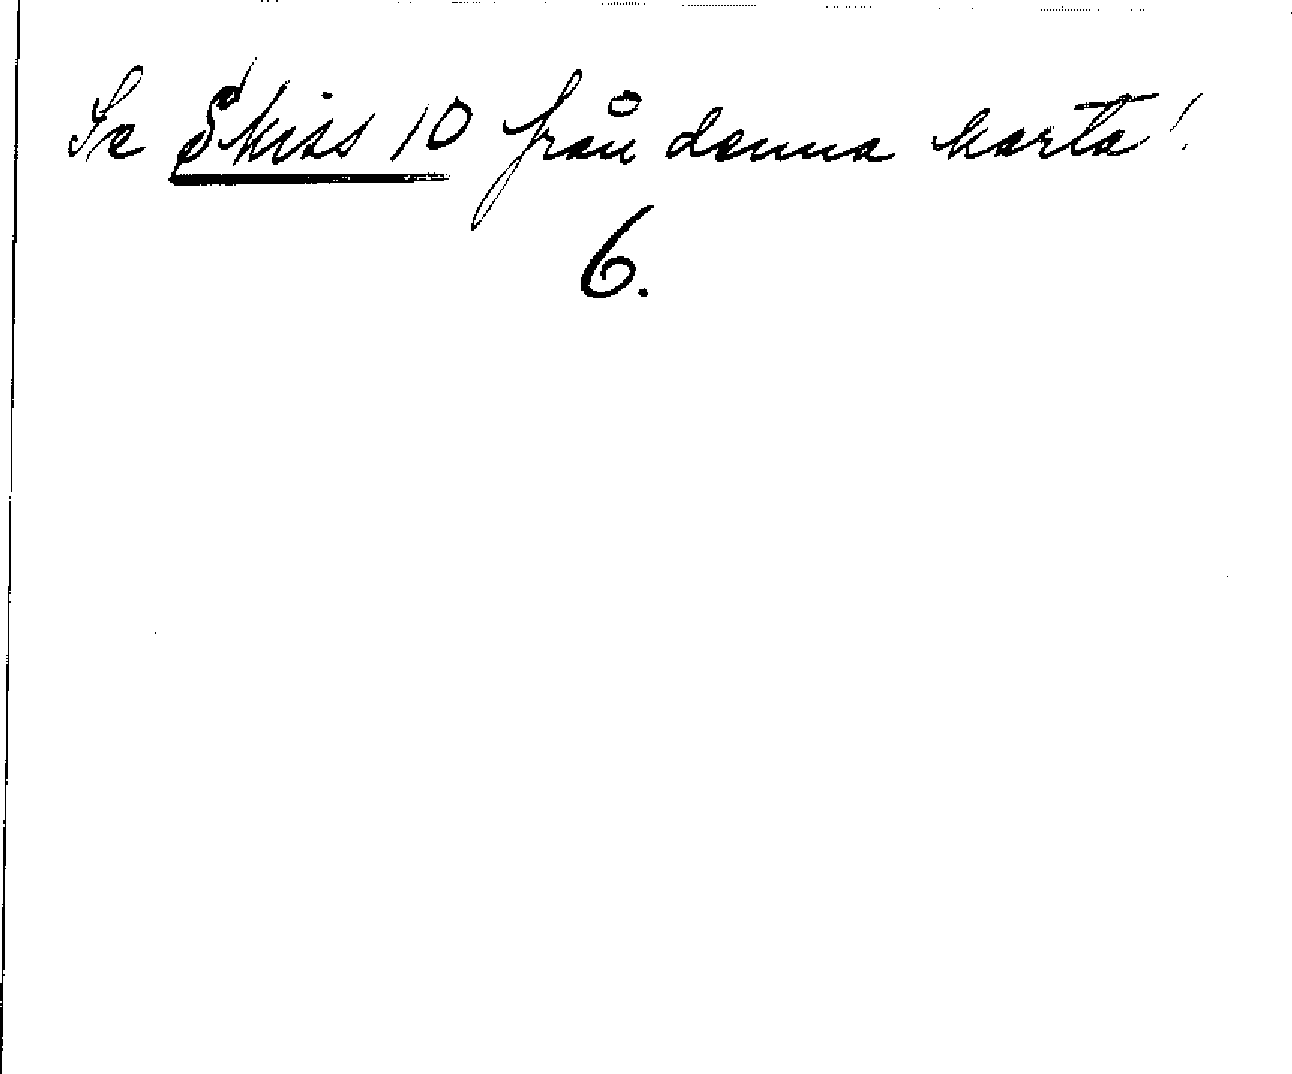 Se Skiss 10 från denna karta!
6.